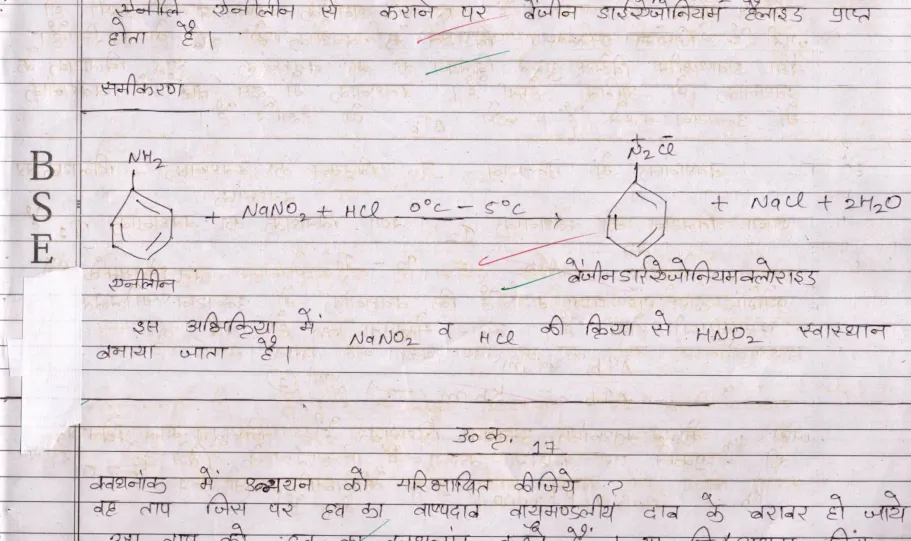 एनील एनीलीन से कराने पर बेंजीन डाईएजोनियम हैलाइड प्राप्त
होता है।
समीकरण
BSE
NH₂
N₂⁺Cl⁻
+ NaNO₂ + HCl 0°C - 5°C → + NaCl + 2H₂O
एनीलीन
बेंजीनडाईएजोनियमक्लोराइड
इस अभिक्रिया में NaNO₂ व HCl की क्रिया से HNO₂ स्वास्थान
बनाया जाता है।
उ० क्र. 17
क्वथनांक में उन्नयन को परिभाषित कीजिये ?
वह ताप जिस पर द्रव का वाष्पदाब वायुमण्डलीय दाब के बराबर हो जाये